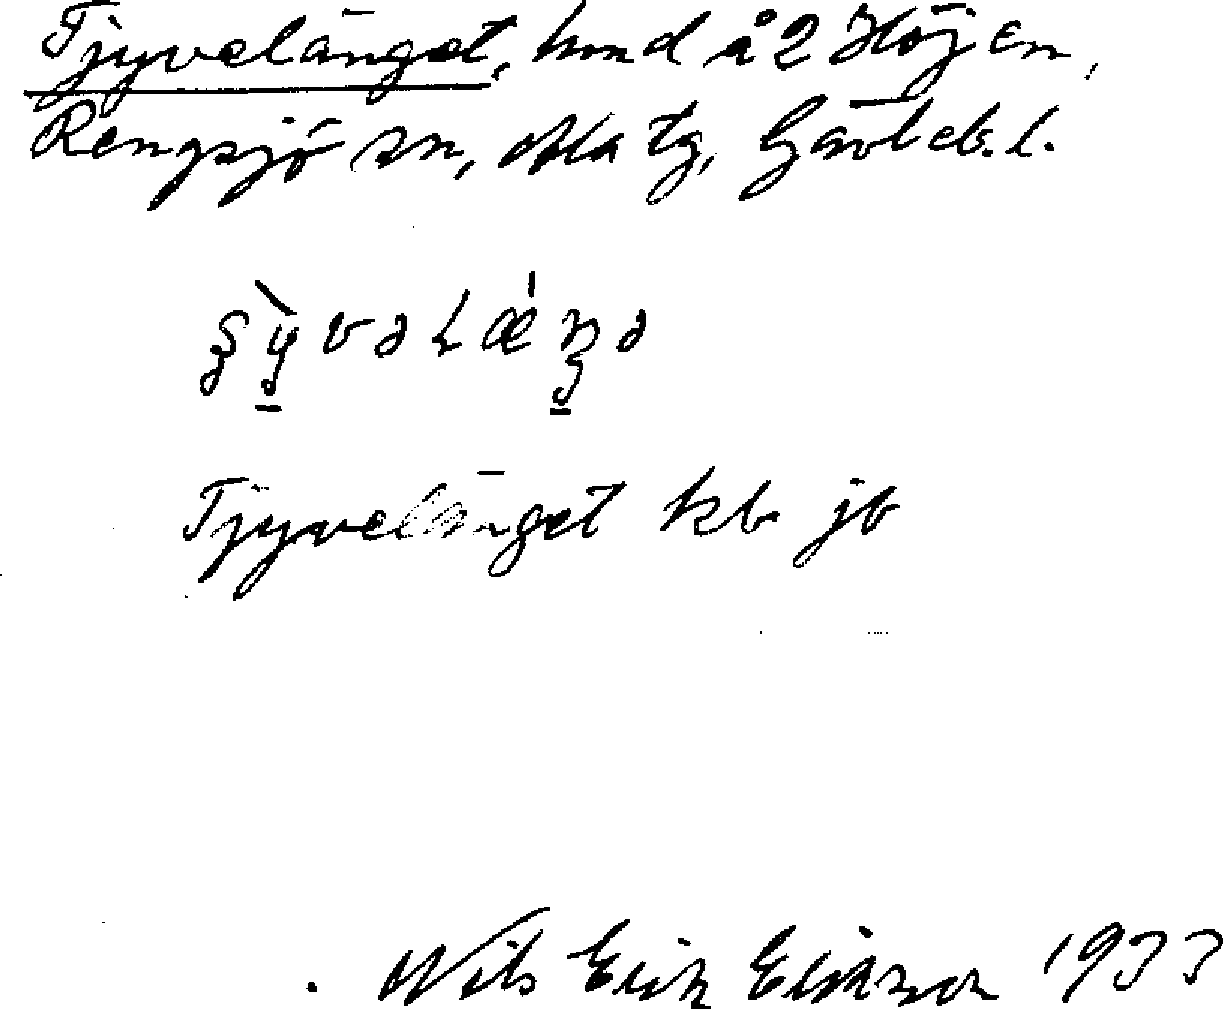 Tjyvelänget, hmd å 2 Höjen,
Rengsjö sn, Ala tg, Gävleb. l.
Tjyvelänget kb jb
Nils Erik Eliasson 1933